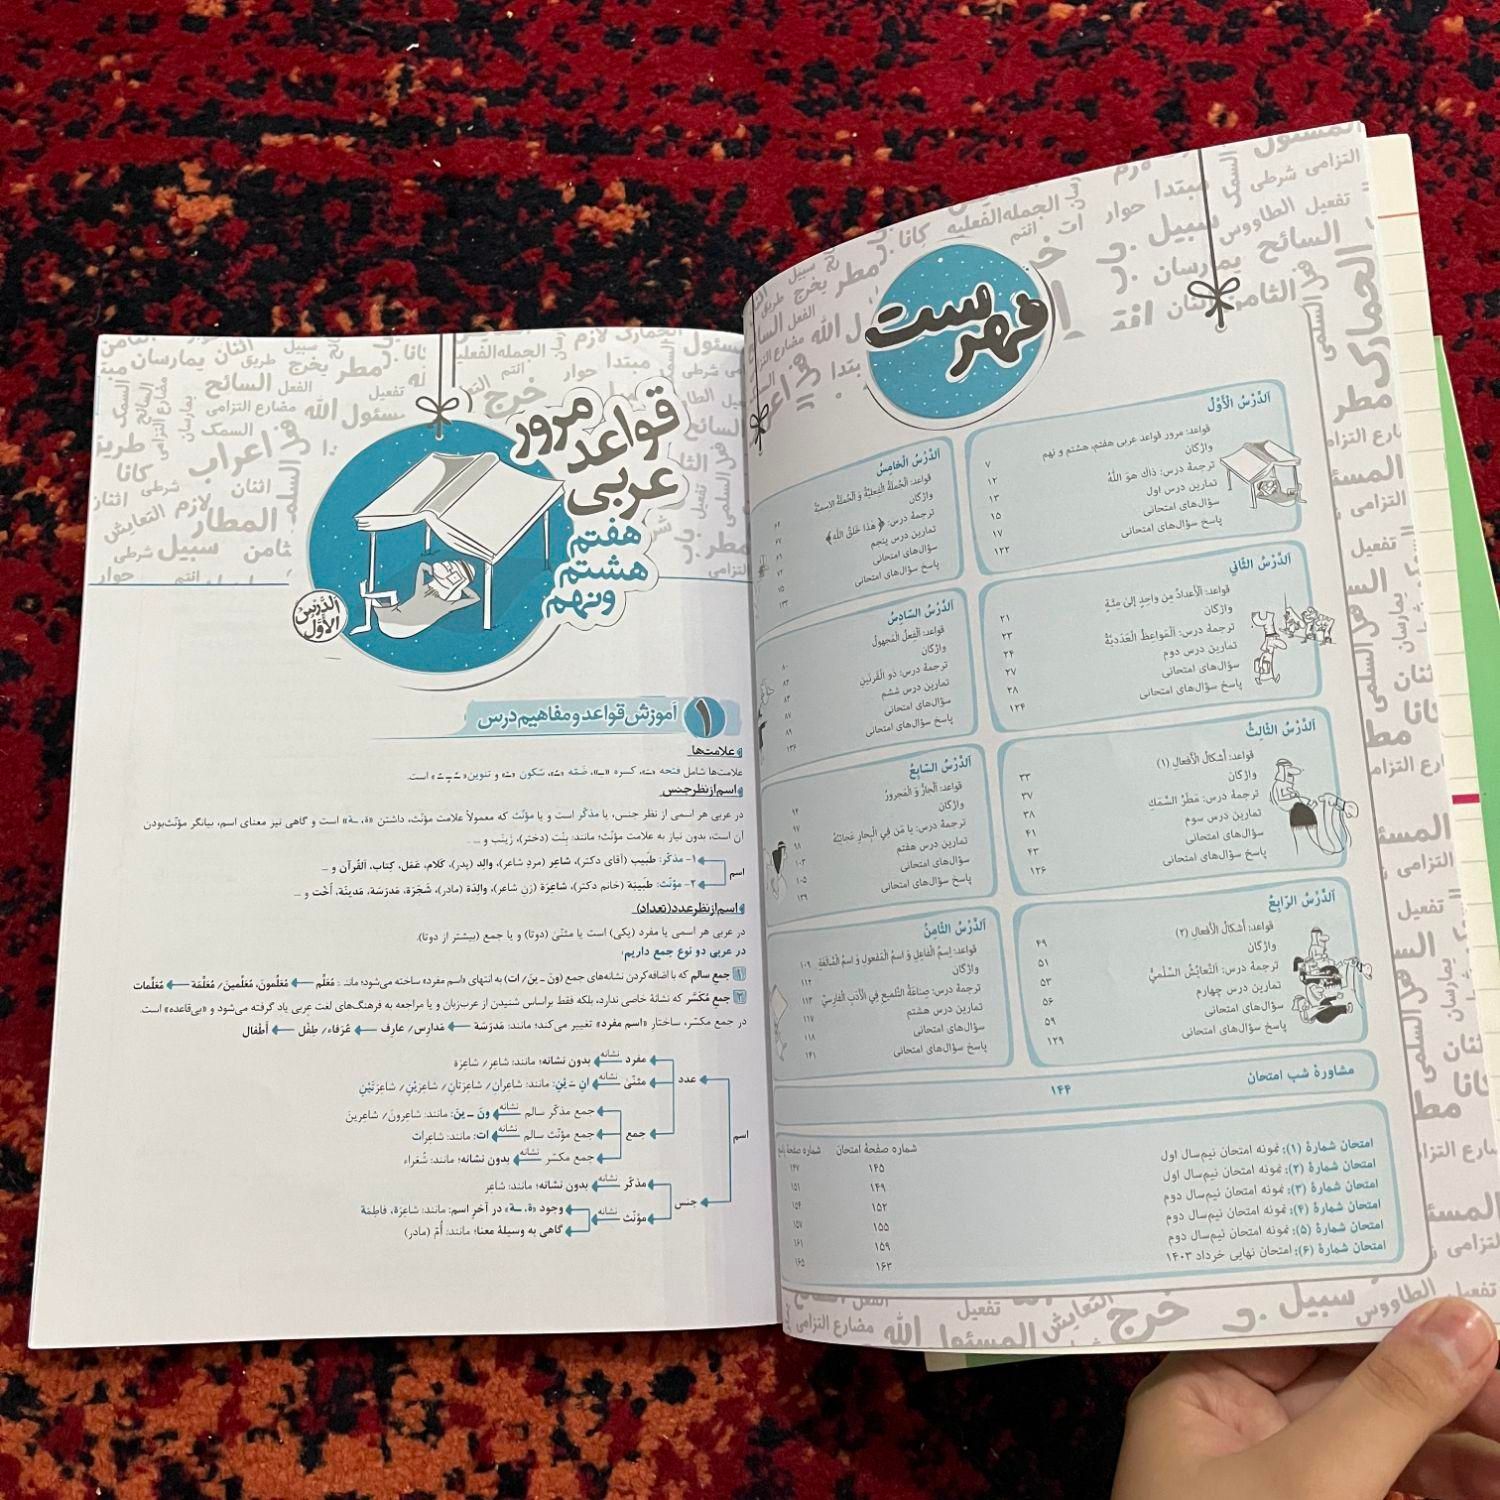 فهرست
اَلدَّرْسُ الْأَوَّلُ
قواعد: مرور قواعد عربی هفتم، هشتم و نهم ۷
واژگان ۱۲
ترجمهٔ درس: ذاكَ هوَ اللّٰهُ ۱۳
تمارین درس اول ۱۵
سؤال‌های امتحانی ۱۷
پاسخ سؤال‌های امتحانی ۱۲۲
اَلدَّرْسُ الثّاني
قواعد: اَلْأَعدادُ مِن واحِدٍ إلیٰ مِئَةٍ ۲۱
واژگان ۲۳
ترجمهٔ درس: اَلْمَواعِظُ الْعَدَديَّةُ ۲۴
تمارین درس دوم ۲۷
سؤال‌های امتحانی ۲۸
پاسخ سؤال‌های امتحانی ۱۲۴
اَلدَّرْسُ الثّالِثُ
قواعد: أَشكالُ الْأَفعالِ (۱) ۳۳
واژگان ۳۷
ترجمهٔ درس: مَطَرُ السَّمَكِ ۳۸
تمارین درس سوم ۴۱
سؤال‌های امتحانی ۴۳
پاسخ سؤال‌های امتحانی ۱۲۶
اَلدَّرْسُ الرّابِعُ
قواعد: أَشكالُ الْأَفعالِ (۲) ۴۹
واژگان ۵۱
ترجمهٔ درس: اَلتَّعايُشُ السِّلْميُّ ۵۳
تمارین درس چهارم ۵۶
سؤال‌های امتحانی ۵۹
پاسخ سؤال‌های امتحانی ۱۲۹
اَلدَّرْسُ الْخامِسُ
قواعد: اَلْجُملَةُ الْفِعليَّةُ وَ الْجُملَةُ الاسميَّةُ ۶۴
واژگان ۶۷
ترجمهٔ درس: ﴿هٰذا خَلْقُ اللّٰهِ﴾ ۶۹
تمارین درس پنجم ۷۲
سؤال‌های امتحانی ۷۵
پاسخ سؤال‌های امتحانی ۱۳۳
اَلدَّرْسُ السّادِسُ
قواعد: اَلْفِعلُ الْمَجهولُ ۸۰
واژگان ۸۲
ترجمهٔ درس: ذو الْقَرنَينِ ۸۳
تمارین درس ششم ۸۷
سؤال‌های امتحانی ۸۹
پاسخ سؤال‌های امتحانی ۱۳۶
اَلدَّرْسُ السّابِعُ
قواعد: اَلْجارُّ وَ الْمَجرورُ ۹۴
واژگان ۹۷
ترجمهٔ درس: يا مَن فِي الْبِحارِ عَجائِبُهُ ۹۸
تمارین درس هفتم ۱۰۳
سؤال‌های امتحانی ۱۰۵
پاسخ سؤال‌های امتحانی ۱۳۹
اَلدَّرْسُ الثّامِنُ
قواعد: اِسمُ الْفاعِلِ وَ اسمُ الْمَفعولِ وَ اسمُ الْمُبالَغَةِ ۱۰۹
واژگان ۱۱۲
ترجمهٔ درس: صِناعَةُ التَّلميعِ فِي الْأَدَبِ الْفارِسيِّ ۱۱۳
تمارین درس هشتم ۱۱۷
سؤال‌های امتحانی ۱۱۸
پاسخ سؤال‌های امتحانی ۱۴۱
مشاورهٔ شب امتحان ۱۴۴
شماره صفحهٔ امتحان شماره صفحهٔ
امتحان شمارهٔ (۱): نمونه امتحان نیم‌سال اول ۱۴۵ ۱۴۷
امتحان شمارهٔ (۲): نمونه امتحان نیم‌سال اول ۱۴۹ ۱۵۱
امتحان شمارهٔ (۳): نمونه امتحان نیم‌سال دوم ۱۵۲ ۱۵۴
امتحان شمارهٔ (۴): نمونه امتحان نیم‌سال دوم ۱۵۵ ۱۵۷
امتحان شمارهٔ (۵): نمونه امتحان نیم‌سال دوم ۱۵۹ ۱۶۱
امتحان شمارهٔ (۶): امتحان نهایی خرداد ۱۴۰۳ ۱۶۳ ۱۶۵
مرور
قواعد
عربی
هفتم
هشتم
ونهم
اَلدَّرْسُ
الْأَوَّلُ
۱ آموزش قواعد و مفاهیم درس
علامت‌ها
علامت‌ها شامل فتحه «ـَ»، کسره «ـِ»، ضمّه «ـُ»، سُکون «ـْ» و تنوین «ـًـٍـٌ» است.
اسم از نظر جنس
در عربی هر اسمی از نظر جنس، یا مذکّر است و یا مؤنّث که معمولاً علامت مؤنّث، داشتن «ة، ـة» است و گاهی نیز معنای اسم، بیانگر مؤنّث‌بودن
آن است، بدون نیاز به علامت مؤنّث؛ مانند: بِنْت (دختر)، زَیْنَب و ...
اسم
۱- مذکّر: طَبیب (آقای دکتر)، شاعِر (مردِ شاعر)، والِد (پدر)، کَلام، عَمَل، کِتاب، اَلْقُرآن و ...
۲- مؤنّث: طَبیبَة (خانم دکتر)، شاعِرَة (زنِ شاعر)، والِدَة (مادر)، شَجَرَة، مَدرَسَة، مَدینَة، أُخْت و ...
اسم از نظر عدد (تعداد)
در عربی هر اسمی یا مفرد (یکی) است یا مثنّیٰ (دوتا) و یا جمع (بیشتر از دوتا).
در عربی دو نوع جمع داریم:
۱ جمع سالم که با اضافه‌کردن نشانه‌های جمع (ونَ ـ ینَ / ات) به انتهای «اسم مفرد» ساخته می‌شود؛ مانند: مُعَلِّم ← مُعَلِّمونَ، مُعَلِّمینَ / مُعَلِّمَة ← مُعَلِّمات
۲ جمع مُکَسَّر که نشانهٔ خاصی ندارد، بلکه فقط براساس شنیدن از عرب‌زبان و یا مراجعه به فرهنگ‌های لغت عربی یاد گرفته می‌شود و «بی‌قاعده» است.
در جمع مکسّر، ساختار «اسم مفرد» تغییر می‌کند؛ مانند: مَدرَسَة ← مَدارِس / عارِف ← عُرَفاء / طِفْل ← أَطْفال
اسم
عدد
مفرد نشانه ← بدون نشانه؛ مانند: شاعِر / شاعِرَة
مثنّیٰ نشانه ← انِ ـ یْنِ؛ مانند: شاعِرانِ / شاعِرَتانِ / شاعِرَیْنِ / شاعِرَتَیْنِ
جمع
جمع مذکّر سالم نشانه ← ونَ ـ ینَ؛ مانند: شاعِرونَ / شاعِرینَ
جمع مؤنّث سالم نشانه ← ات؛ مانند: شاعِرات
جمع مکسّر نشانه ← بدون نشانه؛ مانند: شُعَراء
جنس
مذکّر نشانه ← بدون نشانه؛ مانند: شاعِر
مؤنّث نشانه ← وجود «ة، ـة» در آخرِ اسم؛ مانند: شاعِرَة، فاطِمَة
گاهی به وسیلهٔ معنا؛ مانند: أُمّ (مادر)